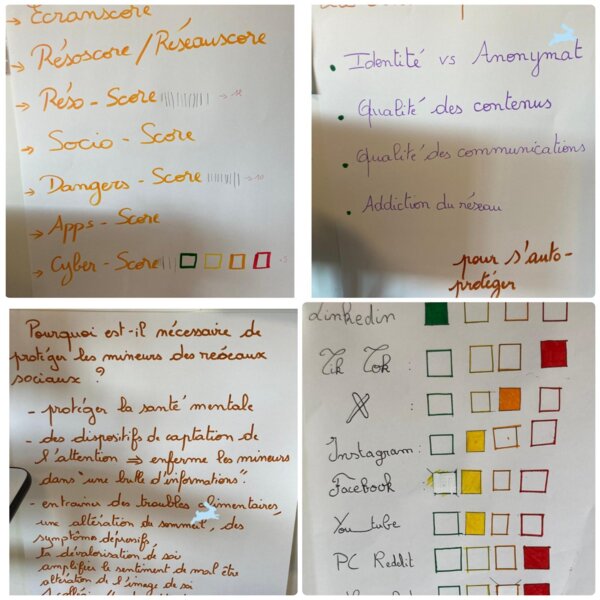 → Ecranscore
→ Résoscore / Réseauscore
→ Réso - Score
→ Socio - Score
→ Dangers - Score
→ Apps - Score
→ Cyber - Score
• Identité vs Anonymat
• Qualité des contenus
• Qualité des communications
• Addiction du réseau
pour s'auto-
protéger
Pourquoi est-il nécessaire de
protéger les mineurs des réseaux
sociaux ?
- protéger la santé mentale
- des dispositifs de captation de
l'attention ⇒ enferme les mineurs
dans "une bulle d'informations".
- entrainer des troubles alimentaires,
une altération du sommeil, des
symptômes dépressifs
la dévalorisation de soi
amplifier le sentiment de mal être
altération de l'image de soi
Linkedin
Tik Tok :
X :
Instagram :
Facebook
Youtube
PC Reddit